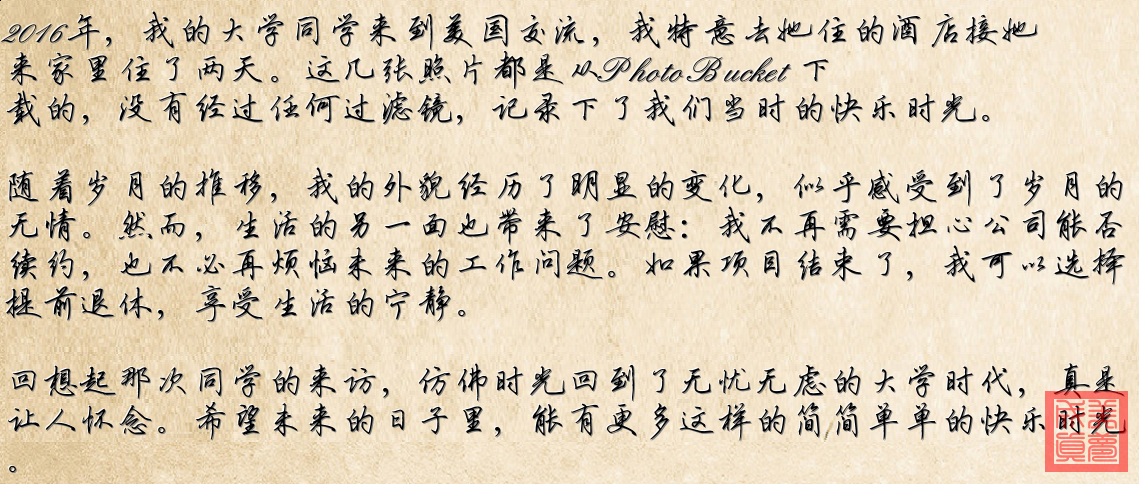 2016年，我的大学同学来到美国交流，我特意去她住的酒店接她
来家里住了两天。这几张照片都是从PhotoBucket下
载的，没有经过任何过滤镜，记录下了我们当时的快乐时光。
随着岁月的推移，我的外貌经历了明显的变化，似乎感受到了岁月的
无情。然而，生活的另一面也带来了安慰：我不再需要担心公司能否
续约，也不必再烦恼未来的工作问题。如果项目结束了，我可以选择
提前退休，享受生活的宁静。
回想起那次同学的来访，仿佛时光回到了无忧无虑的大学时代，真是
让人怀念。希望未来的日子里，能有更多这样的简简单单的快乐时光
。